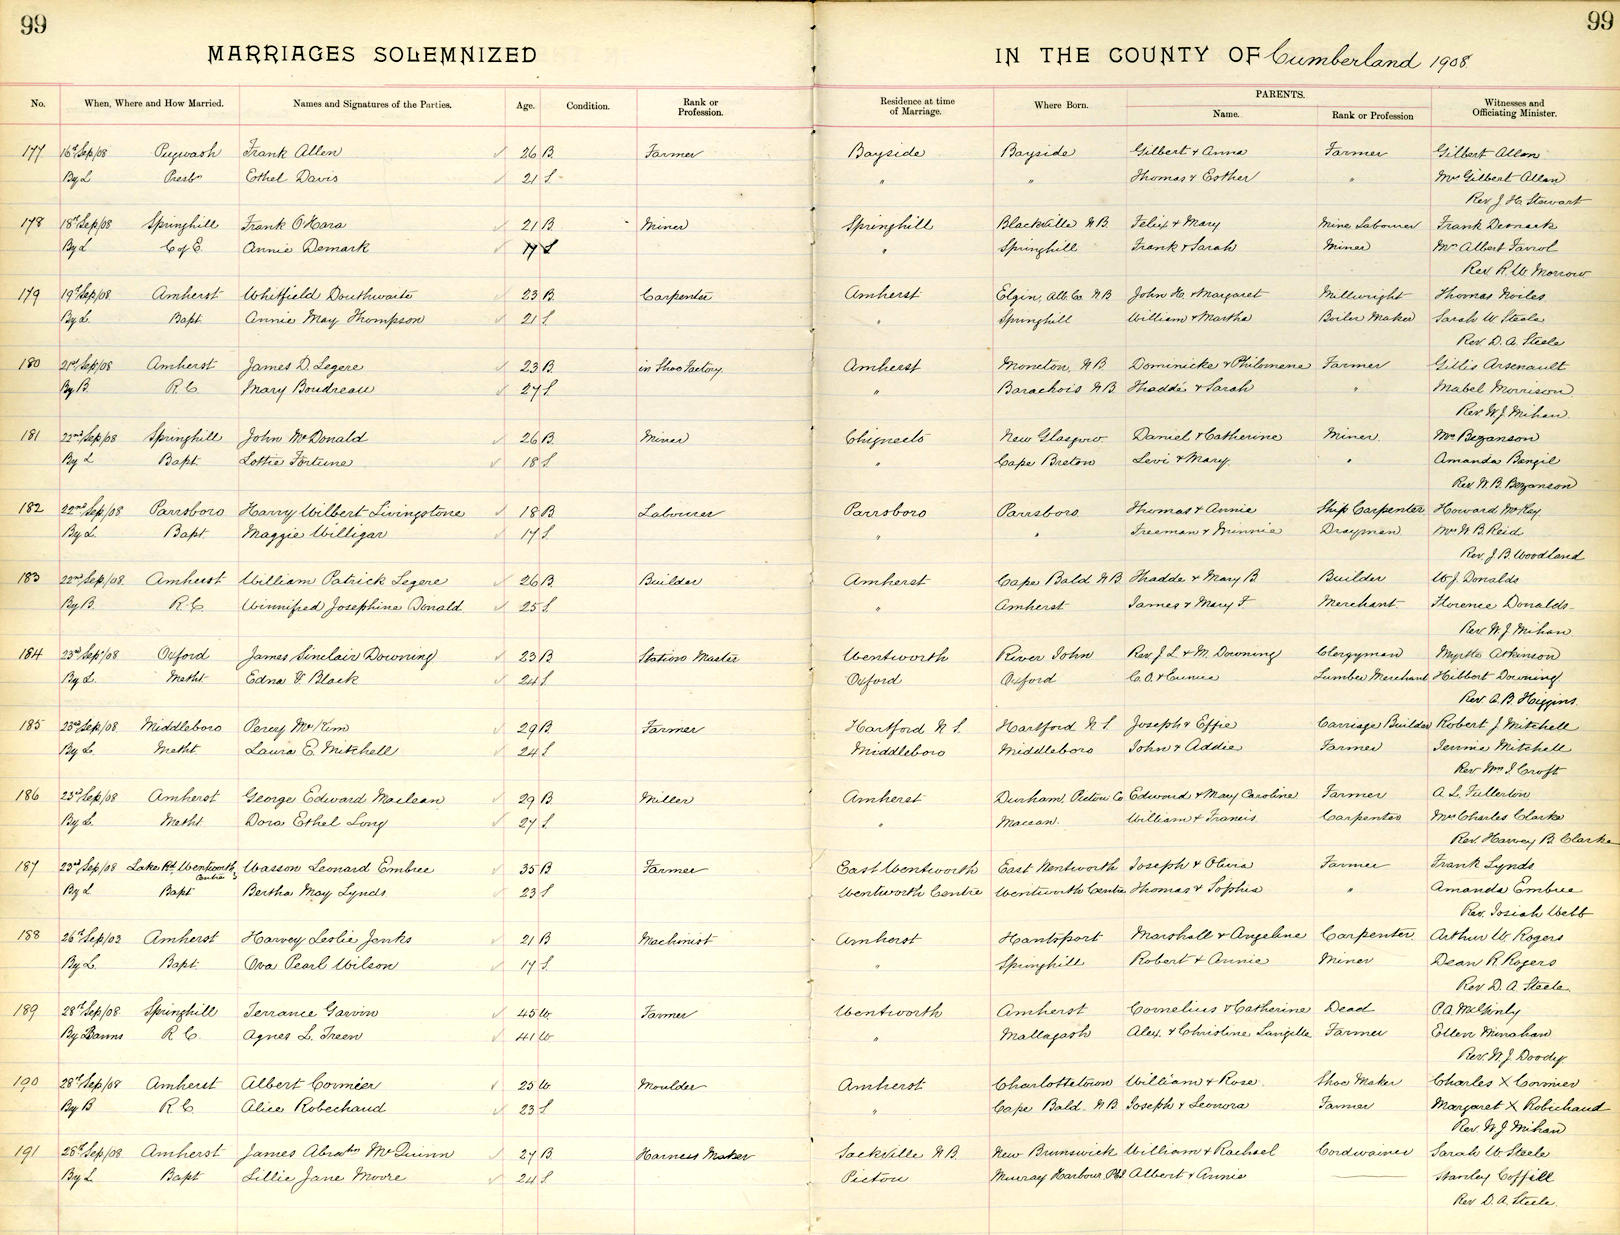 99 99
MARRIAGES SOLEMNIZED IN THE COUNTY OF Cumberland 1908
No. When, Where and How Married. Names and Signatures of the Parties. Age. Condition. Rank or Profession. Residence at time of Marriage. Where Born. PARENTS. Name. Rank or Profession Witnesses and Officiating Minister.
177 16th Sep/08 Pugwash Frank Allen 26 B. Farmer Bayside Bayside Gilbert & Anna Farmer Gilbert Allan
By L Presbn Ethel Davis 21 S. " " Thomas & Esther " Mrs Gilbert Allan
Rev J. H. Stewart
178 18th Sep/08 Springhill Frank O'Hara 21 B. Miner Springhill Blackville N.B. Felix & Mary Mine Labourer Frank Demark
By L C of E. Annie Demark 17 S " Springhill Frank & Sarah Miner Mrs Albert
Rev R. W. Morrow
179 19th Sep/08 Amherst Whitfield Douthwaite 23 B. Carpenter Amherst Elgin, Alb. Co. N B John H. & Margaret Millwright Thomas Noiles
By L. Bapt. Annie May Thompson 21 S " Springhill William & Martha Boiler Maker Sarah W. Steele
Rev. D. A. Steele
180 21st Sep/08 Amherst James D. Legere 23 B. in Shoe Factory Amherst Moncton, N.B. Dominicke & Philomene Farmer Gillis Arsenault
By B. R. C. Mary Boudreau 27 S. " Barachois N B. Thaddé & Sarah " Mabel Morrison
Rev. W. J. Mihan
181 22nd Sep/08 Springhill John McDonald 26 B. Miner Chignecto New Glasgow Daniel & Catherine Miner Mrs Bezanson
By L Bapt. Lottie Fortune 18 S. " Cape Breton Levi & Mary " Amanda
Rev. W. B. Bezanson
182 22nd Sep/08 Parrsboro Harry Wilbert Livingstone 18 B. Labourer Parrsboro Parrsboro Thomas & Annie Ship Carpenter Howard McKay
By L. Bapt. Maggie Willigar 17 S. " " Freeman & Minnie Drayman Mrs N B. Reid
Rev. J. B. Woodland
183 22nd Sep/08. Amherst William Patrick Legere 26 B. Builder Amherst Cape Bald N B Thadde & Mary B. Builder W. J. Donalds
By B. R. C Winnifred Josephine Donald 25 S. " Amherst James & Mary F. Merchant Florence Donalds
Rev. W J Mihan
184 23rd Sep/08 Oxford James Sinclair Downing 23 B Station Master Wentworth River John Rev. J. L. & M. Downing Clergyman Myrtle Atkinson
By L. Metht Edna V. Black 24 S Oxford Oxford C. O. & Eunice Lumber Merchant Hibbert Downing
Rev. A. B. Higgins.
185 23rd Sep/08. Middleboro Percy McKim 29 B. Farmer Hartford N S. Hartford N S. Joseph & Effie Carriage Builder Robert J Mitchell
By L. Metht Laura E. Mitchell 24 S. Middleboro Middleboro John & Addie Farmer Jennie Mitchell
Rev. Wm I Croft
186 23rd Sep/08 Amherst George Edward Maclean 29 B. Miller Amherst Durham, Pictou Co Edward & Mary Caroline Farmer A. L. Fullerton
By L. Metht Dora Ethel Long 27 S. " Maccan. William & Francis Carpenter Mrs Charles Clarke
Rev. Harvey B. Clarke
187 23rd Sep/08 Lake Rd. Wentworth Centre Wasson Leonard Embree 35 B Farmer East Wentworth East Wentworth Joseph & Olivia Farmer Frank Lynds
By L Bapt Bertha May Lynds 23 S. Wentworth Centre Wentworth Centre Thomas & Sophia " Amanda Embree
Rev. Josiah Webb
188 26th Sep/08 Amherst Harvey Leslie Jenks 21 B Machinist Amherst Hantsport Marshall & Angeline Carpenter Arthur W. Rogers
By L. Bapt. Ova Pearl Wilson 17 S. " Springhill Robert & Annie Miner Dean R. Rogers
Rev D. A. Steele.
189 28th Sep/08 Springhill Terrance Garvin 45 W. Farmer Wentworth Amherst Cornelius & Catherine Dead P. A. McGinly
By Banns R C. Agnes L. Treen 41 W " Mallagash Alex. & Christine Langille Farmer Ellen Minahan
Rev. W. J. Doody.
190 28th Sep/08 Amherst Albert Cormier 25 W. Moulder Amherst Charlottetown William & Rose Shoe Maker Charles X Cormier
By B R C. Alice Robechaud 23 S " Cape Bald. N B. Joseph & Leonora Farmer Margaret X Robichaud
Rev. W J Mihan
191 28th Sep/08 Amherst James Abrahm McQuinn 27 B Harness Maker Sackville N B. New Brunswick William & Rachael Cordwainer Sarah W Steele
By L Bapt Lillie Jane Moore 24 S. Pictou Murray Harbour P E I Albert & Annie Stanley Coffill
Rev. D. A. Steele.